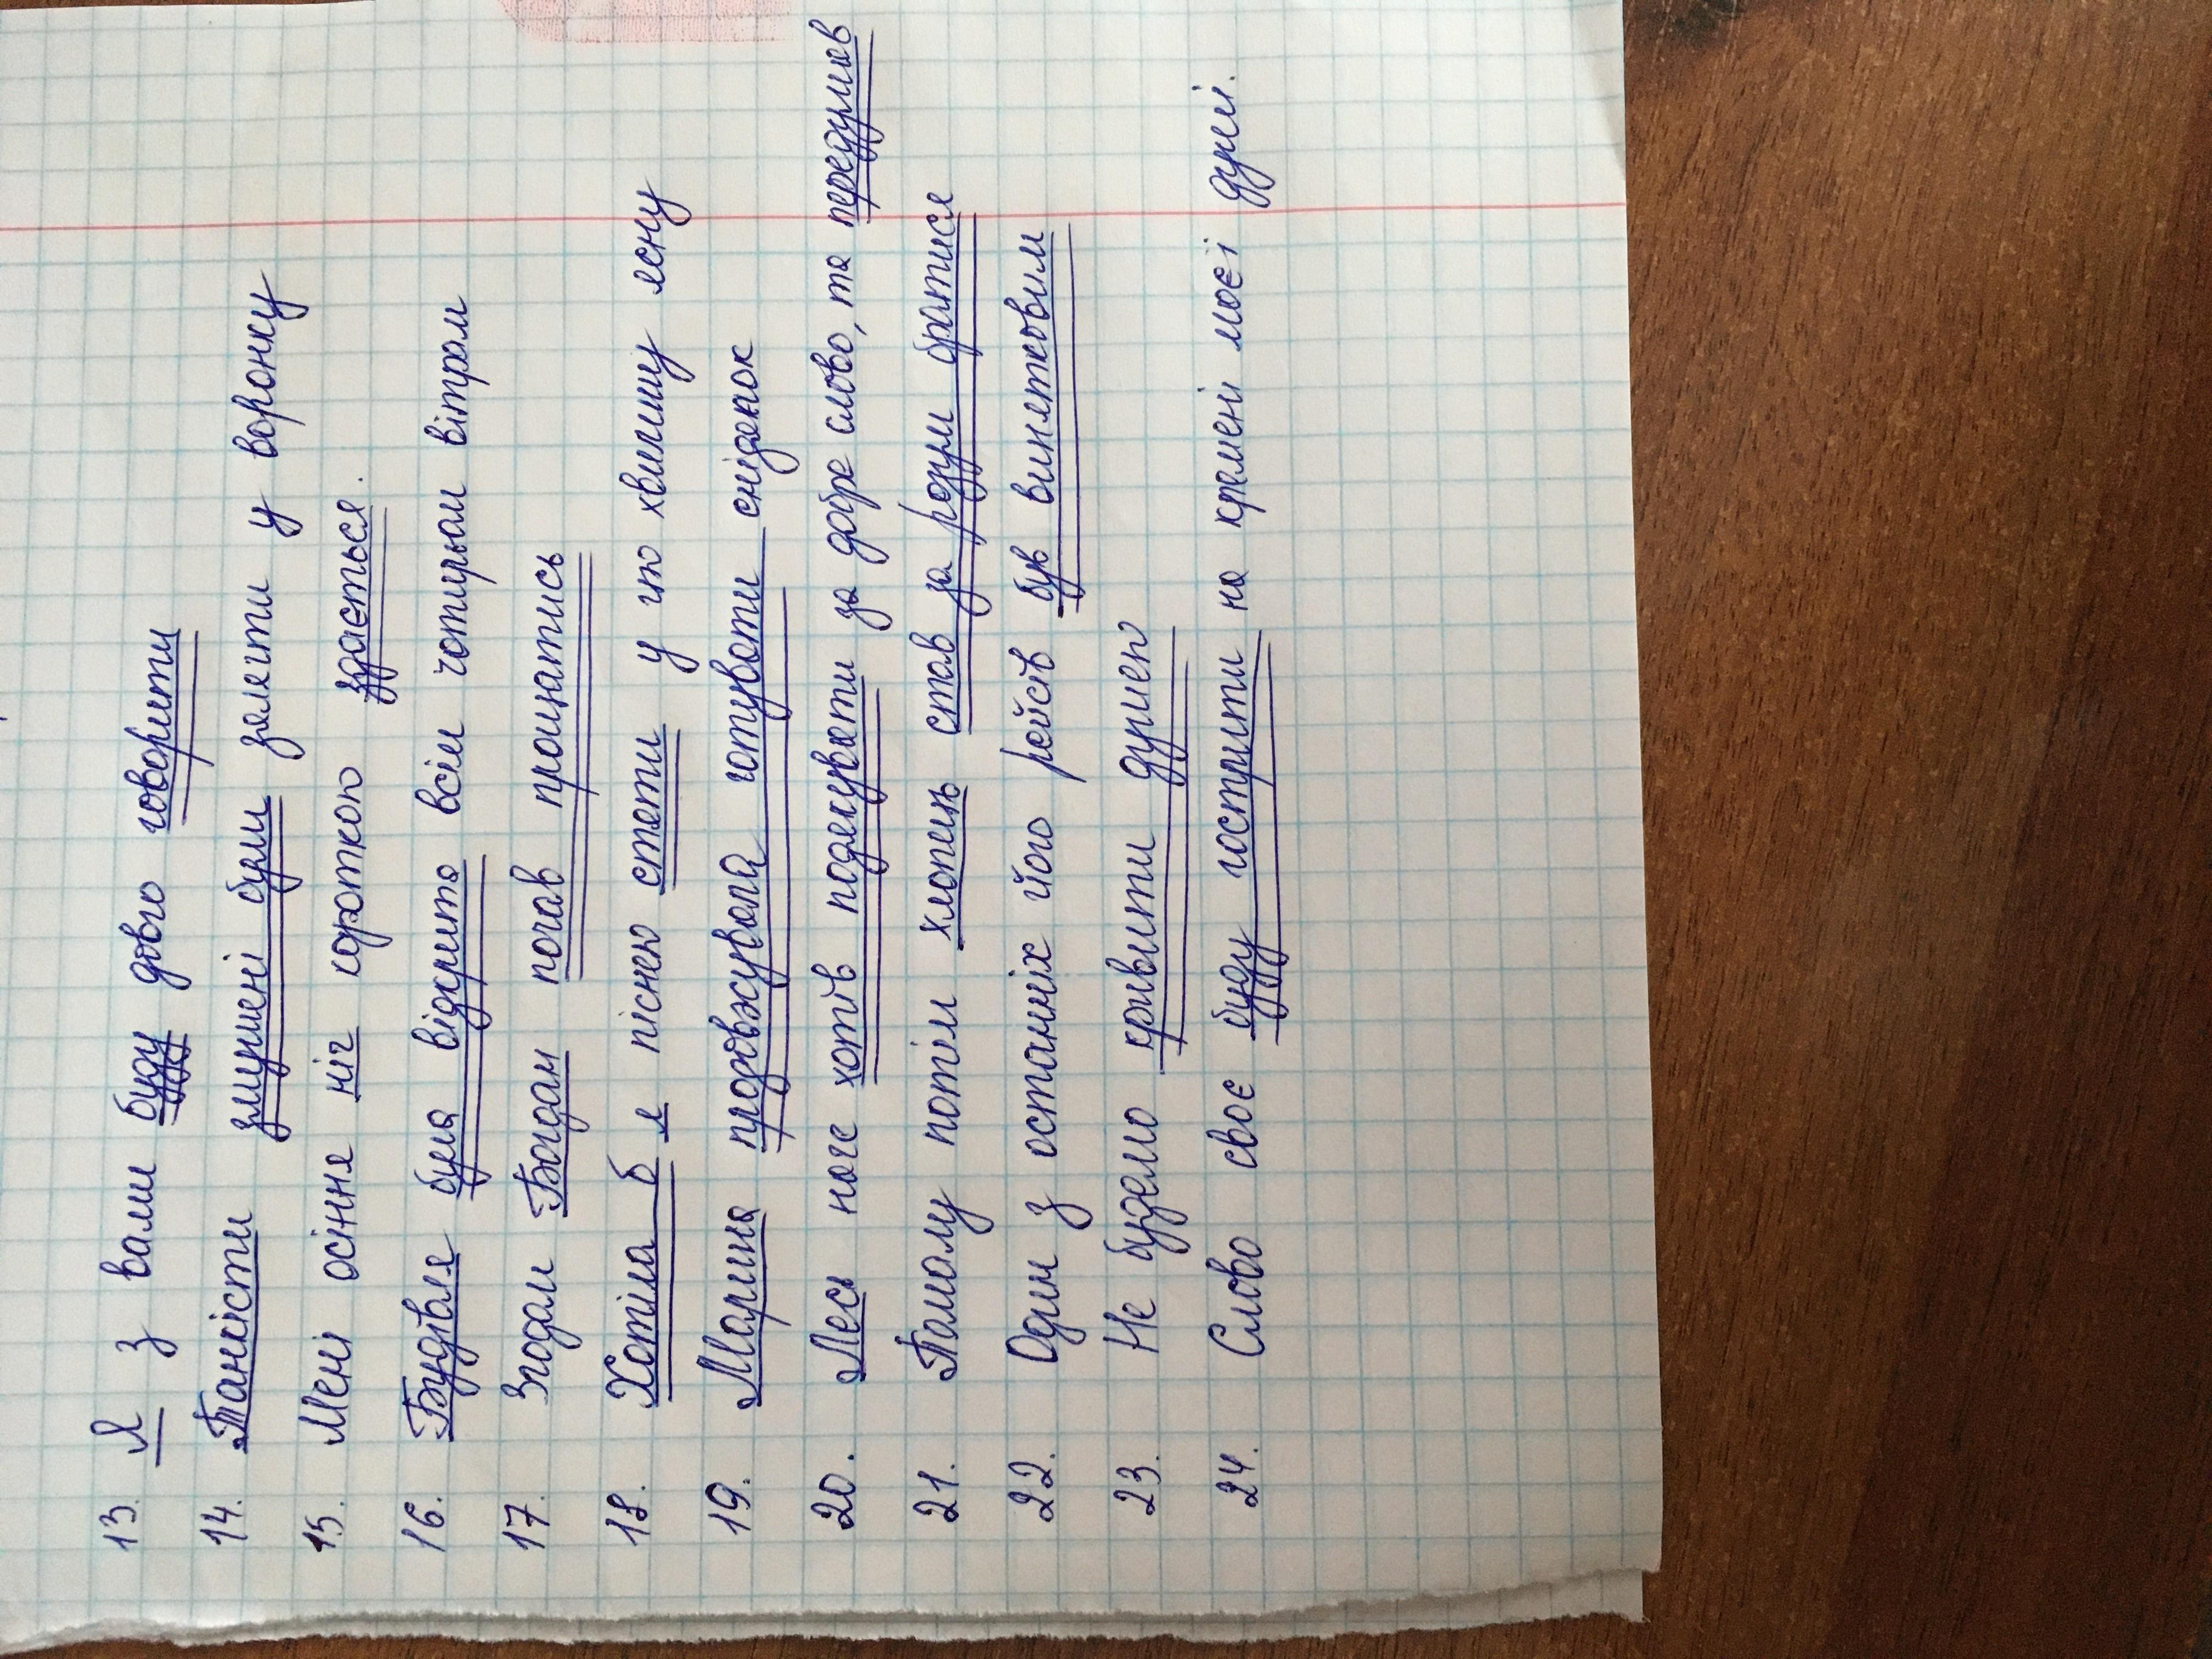 13. Я з вами буду довго говорити
14. Танкісти змушені були залягти у воронку
15. Мені осіння ніч короткою здається.
16. Будівля була відкрита всім чотирьом вітрам
17. Згодом Богдан почав прощатись
18. Хотіла б я піснею стати у цю хвилину ясну
19. Марина продовжувала готувати сніданок
20. Лесь наче хотів подякувати за добре слово, та передумав
21. Помалу потім хлопець став за розум братися
22. Один з останніх його рейсів був винятковим
23. Не будемо кривити душею
24. Слово своє буду гострити на кремені моєї душі.